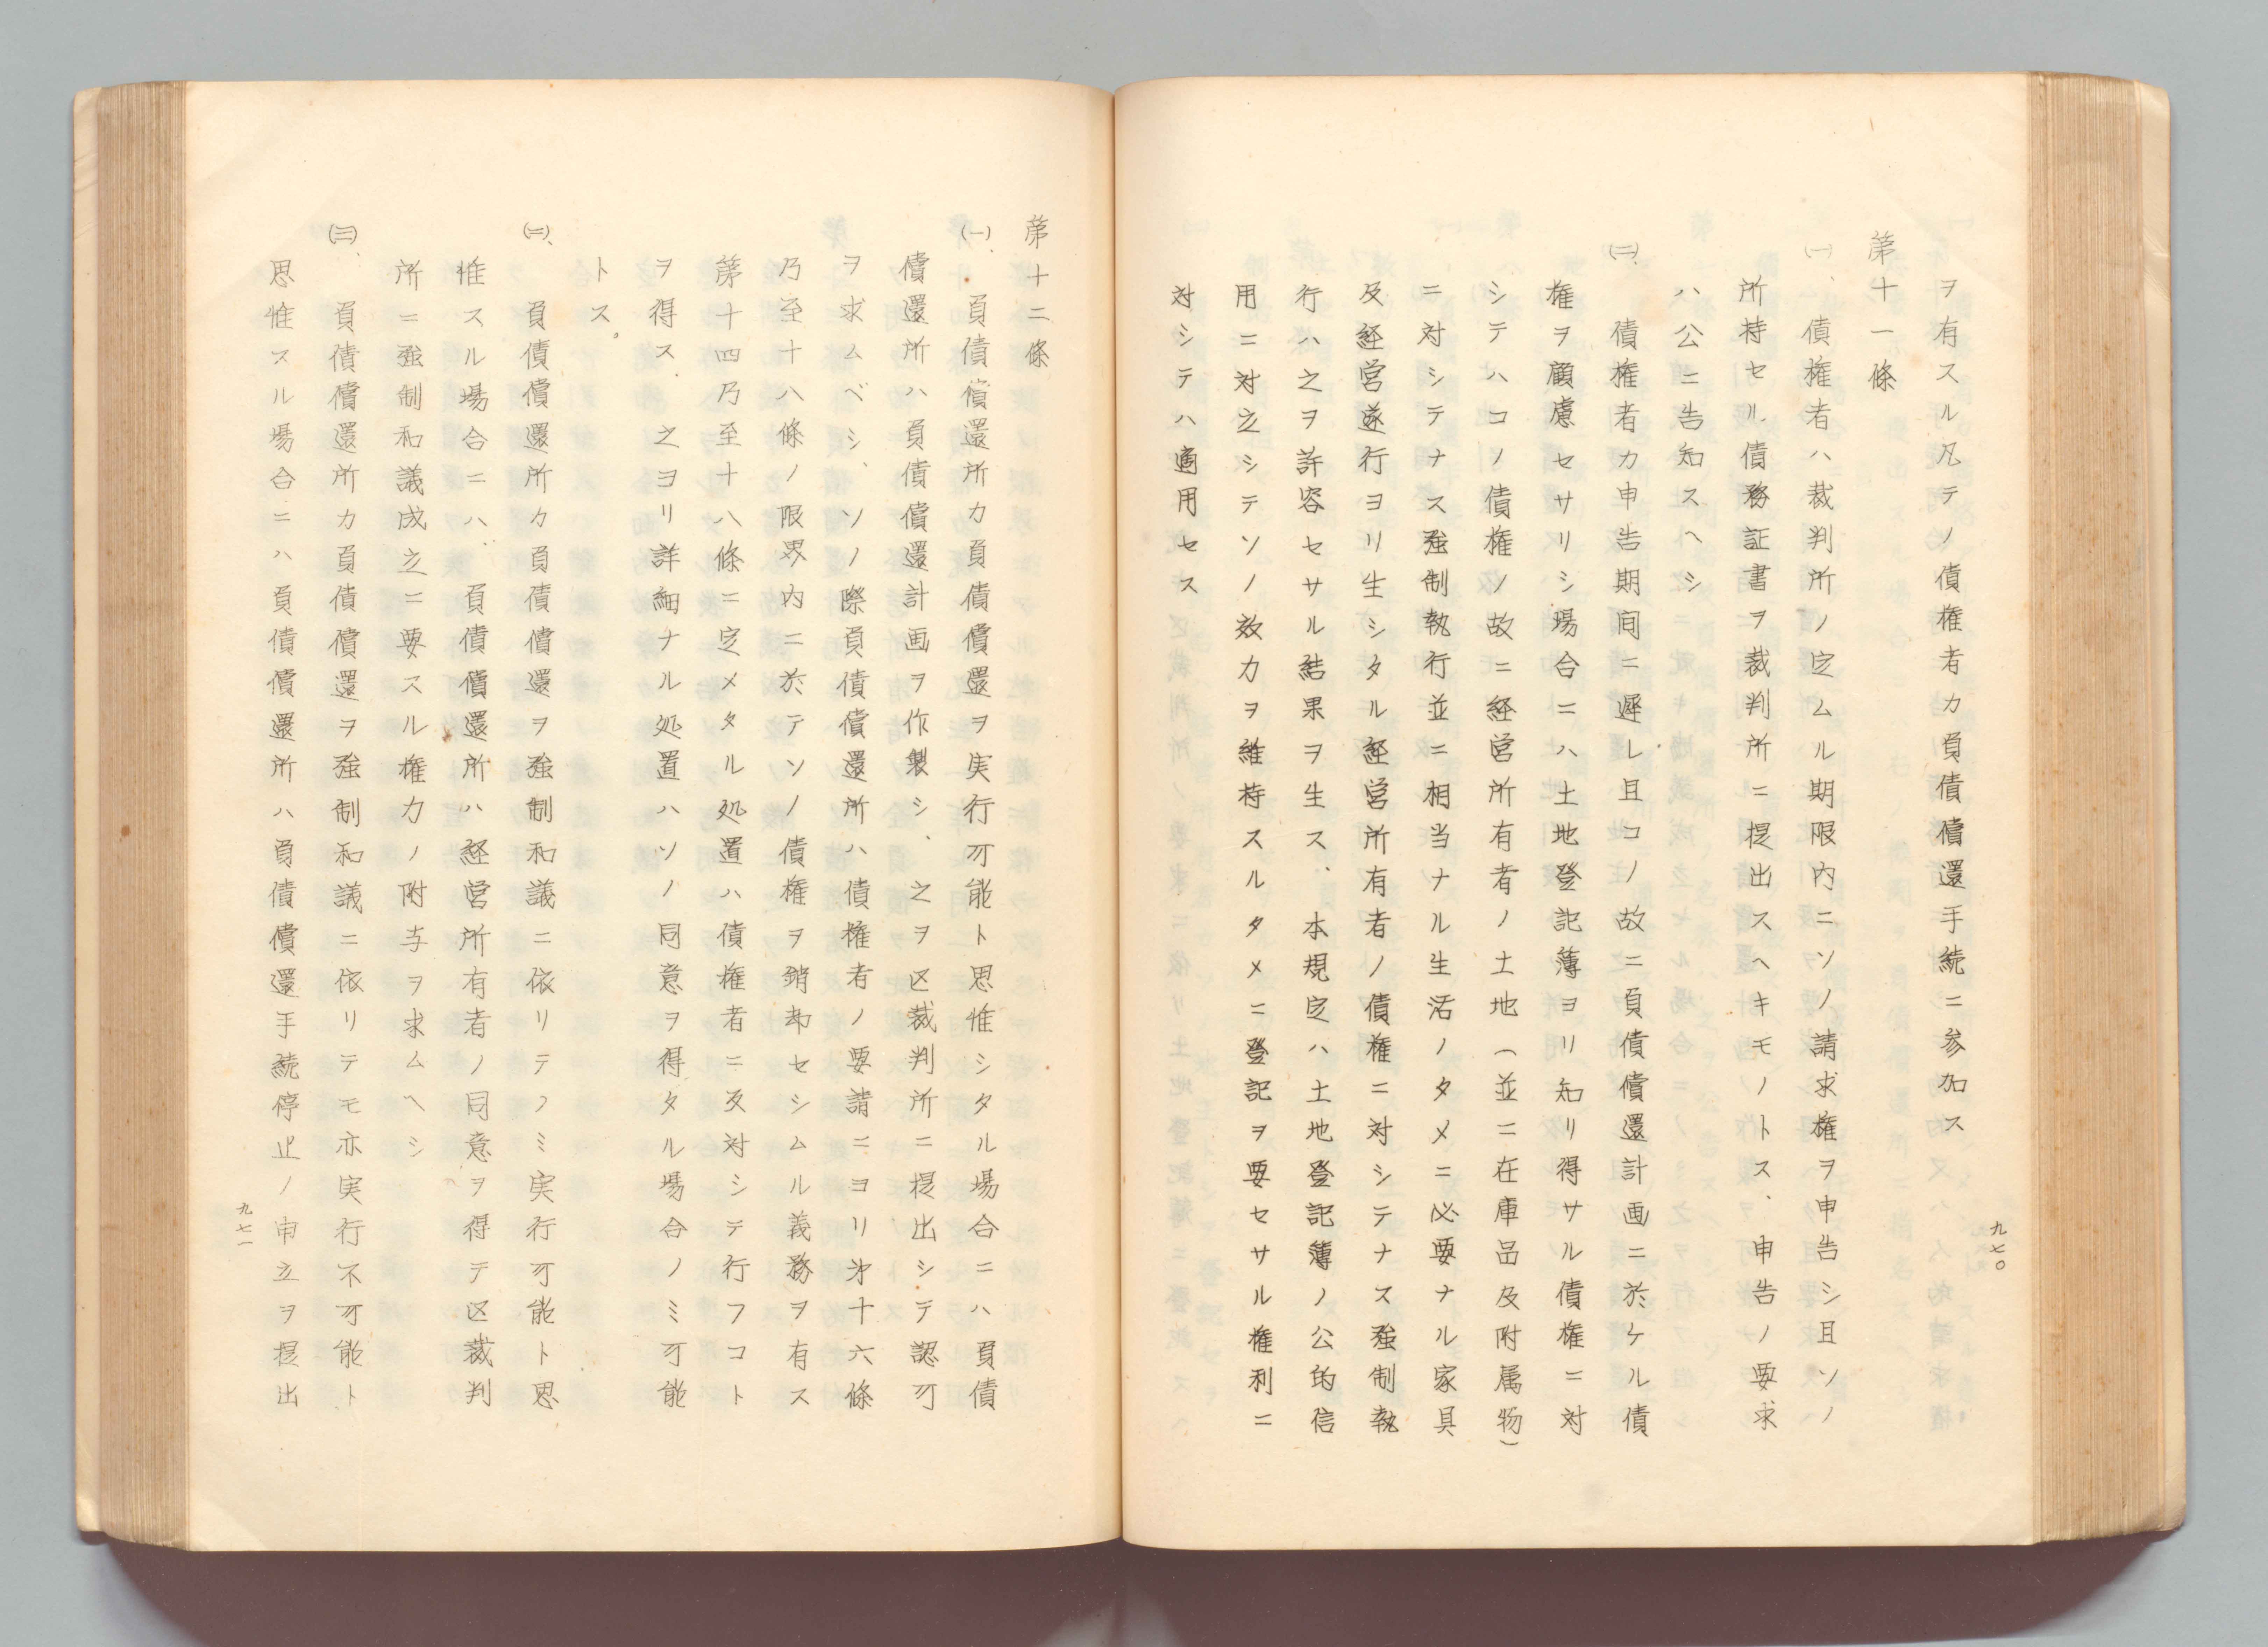 九七〇
ヲ有スル凡テノ債権者カ負債償還手続ニ参加ス
第十一條
(一)、債権者ハ裁判所ノ定ムル期限内ニソノ請求権ヲ申告シ且ソノ
所持セル債務証書ヲ裁判所ニ提出スヘキモノトス、申告ノ要求
ハ公ニ告知スヘシ
(二)、債権者カ申告期间ニ遅レ且コノ故ニ負債償還計画ニ於ケル債
権ヲ顧慮セサリシ場合ニハ土地登記薄ヨリ知リ得サル債権ニ対
シテハコノ債権ノ故ニ経営所有者ノ土地(並ニ在庫品及附属物)
ニ対シテナス強制執行並ニ相当ナル生活ノタメニ必要ナル家具
及経営遂行ヨリ生シタル経営所有者ノ債権ニ対シテナス強制執
行ハ之ヲ許容セサル結果ヲ生ス、本規定ハ土地登記薄ノ公的信
用ニ対立シテソノ效力ヲ維持スルタメニ登記ヲ要セサル権利ニ
対シテハ適用セス
第十二條
(一)、負債償還所カ負債償還ヲ実行可能ト思惟シタル場合ニハ負債
償還所ハ負債償還計画ヲ作製シ、之ヲ区裁判所ニ提出シテ認可
ヲ求ムベシ、ソノ際負債償還所ハ債権者ノ要請ニヨリ㐧十六條
乃至十八條ノ限界内ニ於テソノ債権ヲ銷却セシムル義務ヲ有ス
第十四乃至十八條ニ定メタル処置ハ債権者ニ反対シテ行フコト
ヲ得ス、之ヨリ詳細ナル処置ハソノ同意ヲ得タル場合ノミ可能
トス。
(二)、負債償還所カ負債償還ヲ強制和議ニ依リテノミ実行可能ト思
惟スル場合ニハ、負債償還所ハ経営所有者ノ同意ヲ得テ区裁判
所ニ強制和議成立ニ要スル権力ノ附与ヲ求ムヘシ
(三)、負債償還所カ負債償還ヲ強制和議ニ依リテモ亦実行不可能ト
思惟スル場合ニハ負債償還所ハ負債償還手続停止ノ申立ヲ提出
九七一